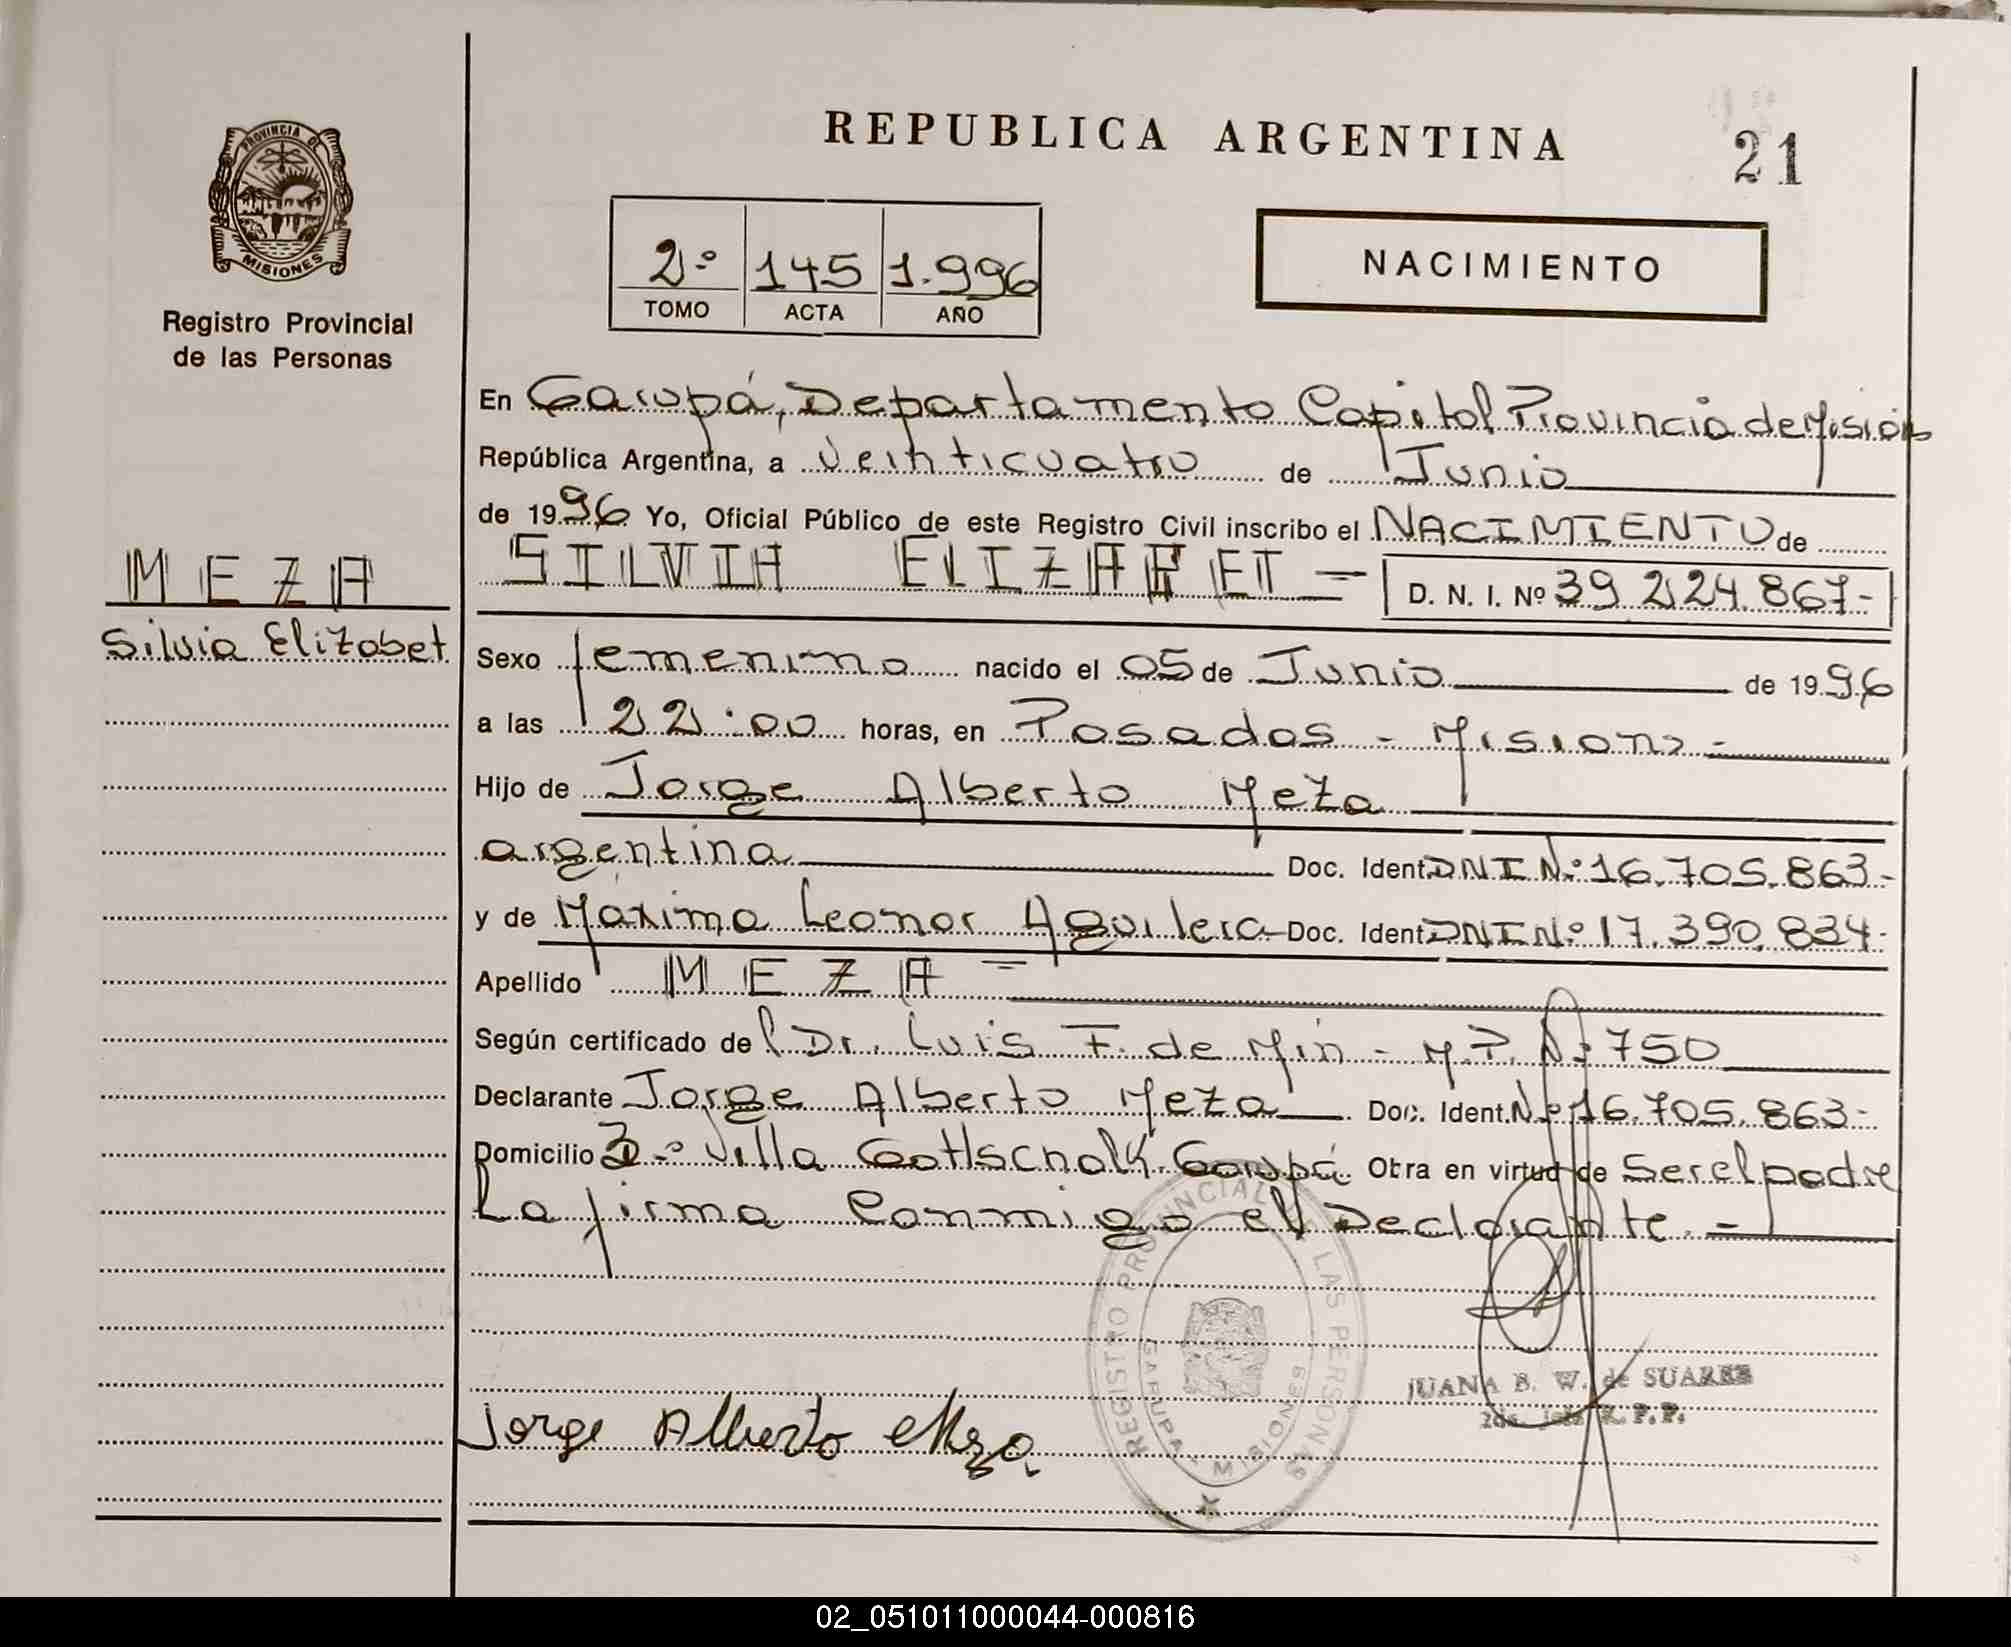 REPUBLICA ARGENTINA
21
PROVINCIA DE
MISIONES
Registro Provincial
de las Personas
2º 145 1.996
TOMO ACTA AÑO
NACIMIENTO
En Garupá, Departamento Capital Provincia de Mision
República Argentina, a Veinticuatro de Junio
de 1996 Yo, Oficial Público de este Registro Civil inscribo el NACIMIENTO de
MEZA
SILVIA ELIZABET = D. N. I. Nº 39 224.867-
Silvia Elizabet
Sexo femenino nacido el 05 de Junio de 1996
a las 22:00 horas, en Posadas - Misions -
Hijo de Jorge Alberto Meza
argentina Doc. Ident. DNI Nº 16.705.863-
y de Máxima Leonor Aguilera Doc. Ident. DNI Nº 17.390.834-
Apellido MEZA =
Según certificado de Dr. Luis F. de Min - M.P. Nº 750
Declarante Jorge Alberto Meza Doc. Ident. Nº 16.705.863-
Domicilio Villa Gottschalk. Garupá Otra en virtud de Ser el padre
La firma Conmigo el Declarante. =
REGISTRO PROVINCIAL LAS PERSONAS
GARUPA MISIONES
JUANA B. W. de SUAREZ
R. P. P.
Jorge Alberto Meza
02_051011000044-000816